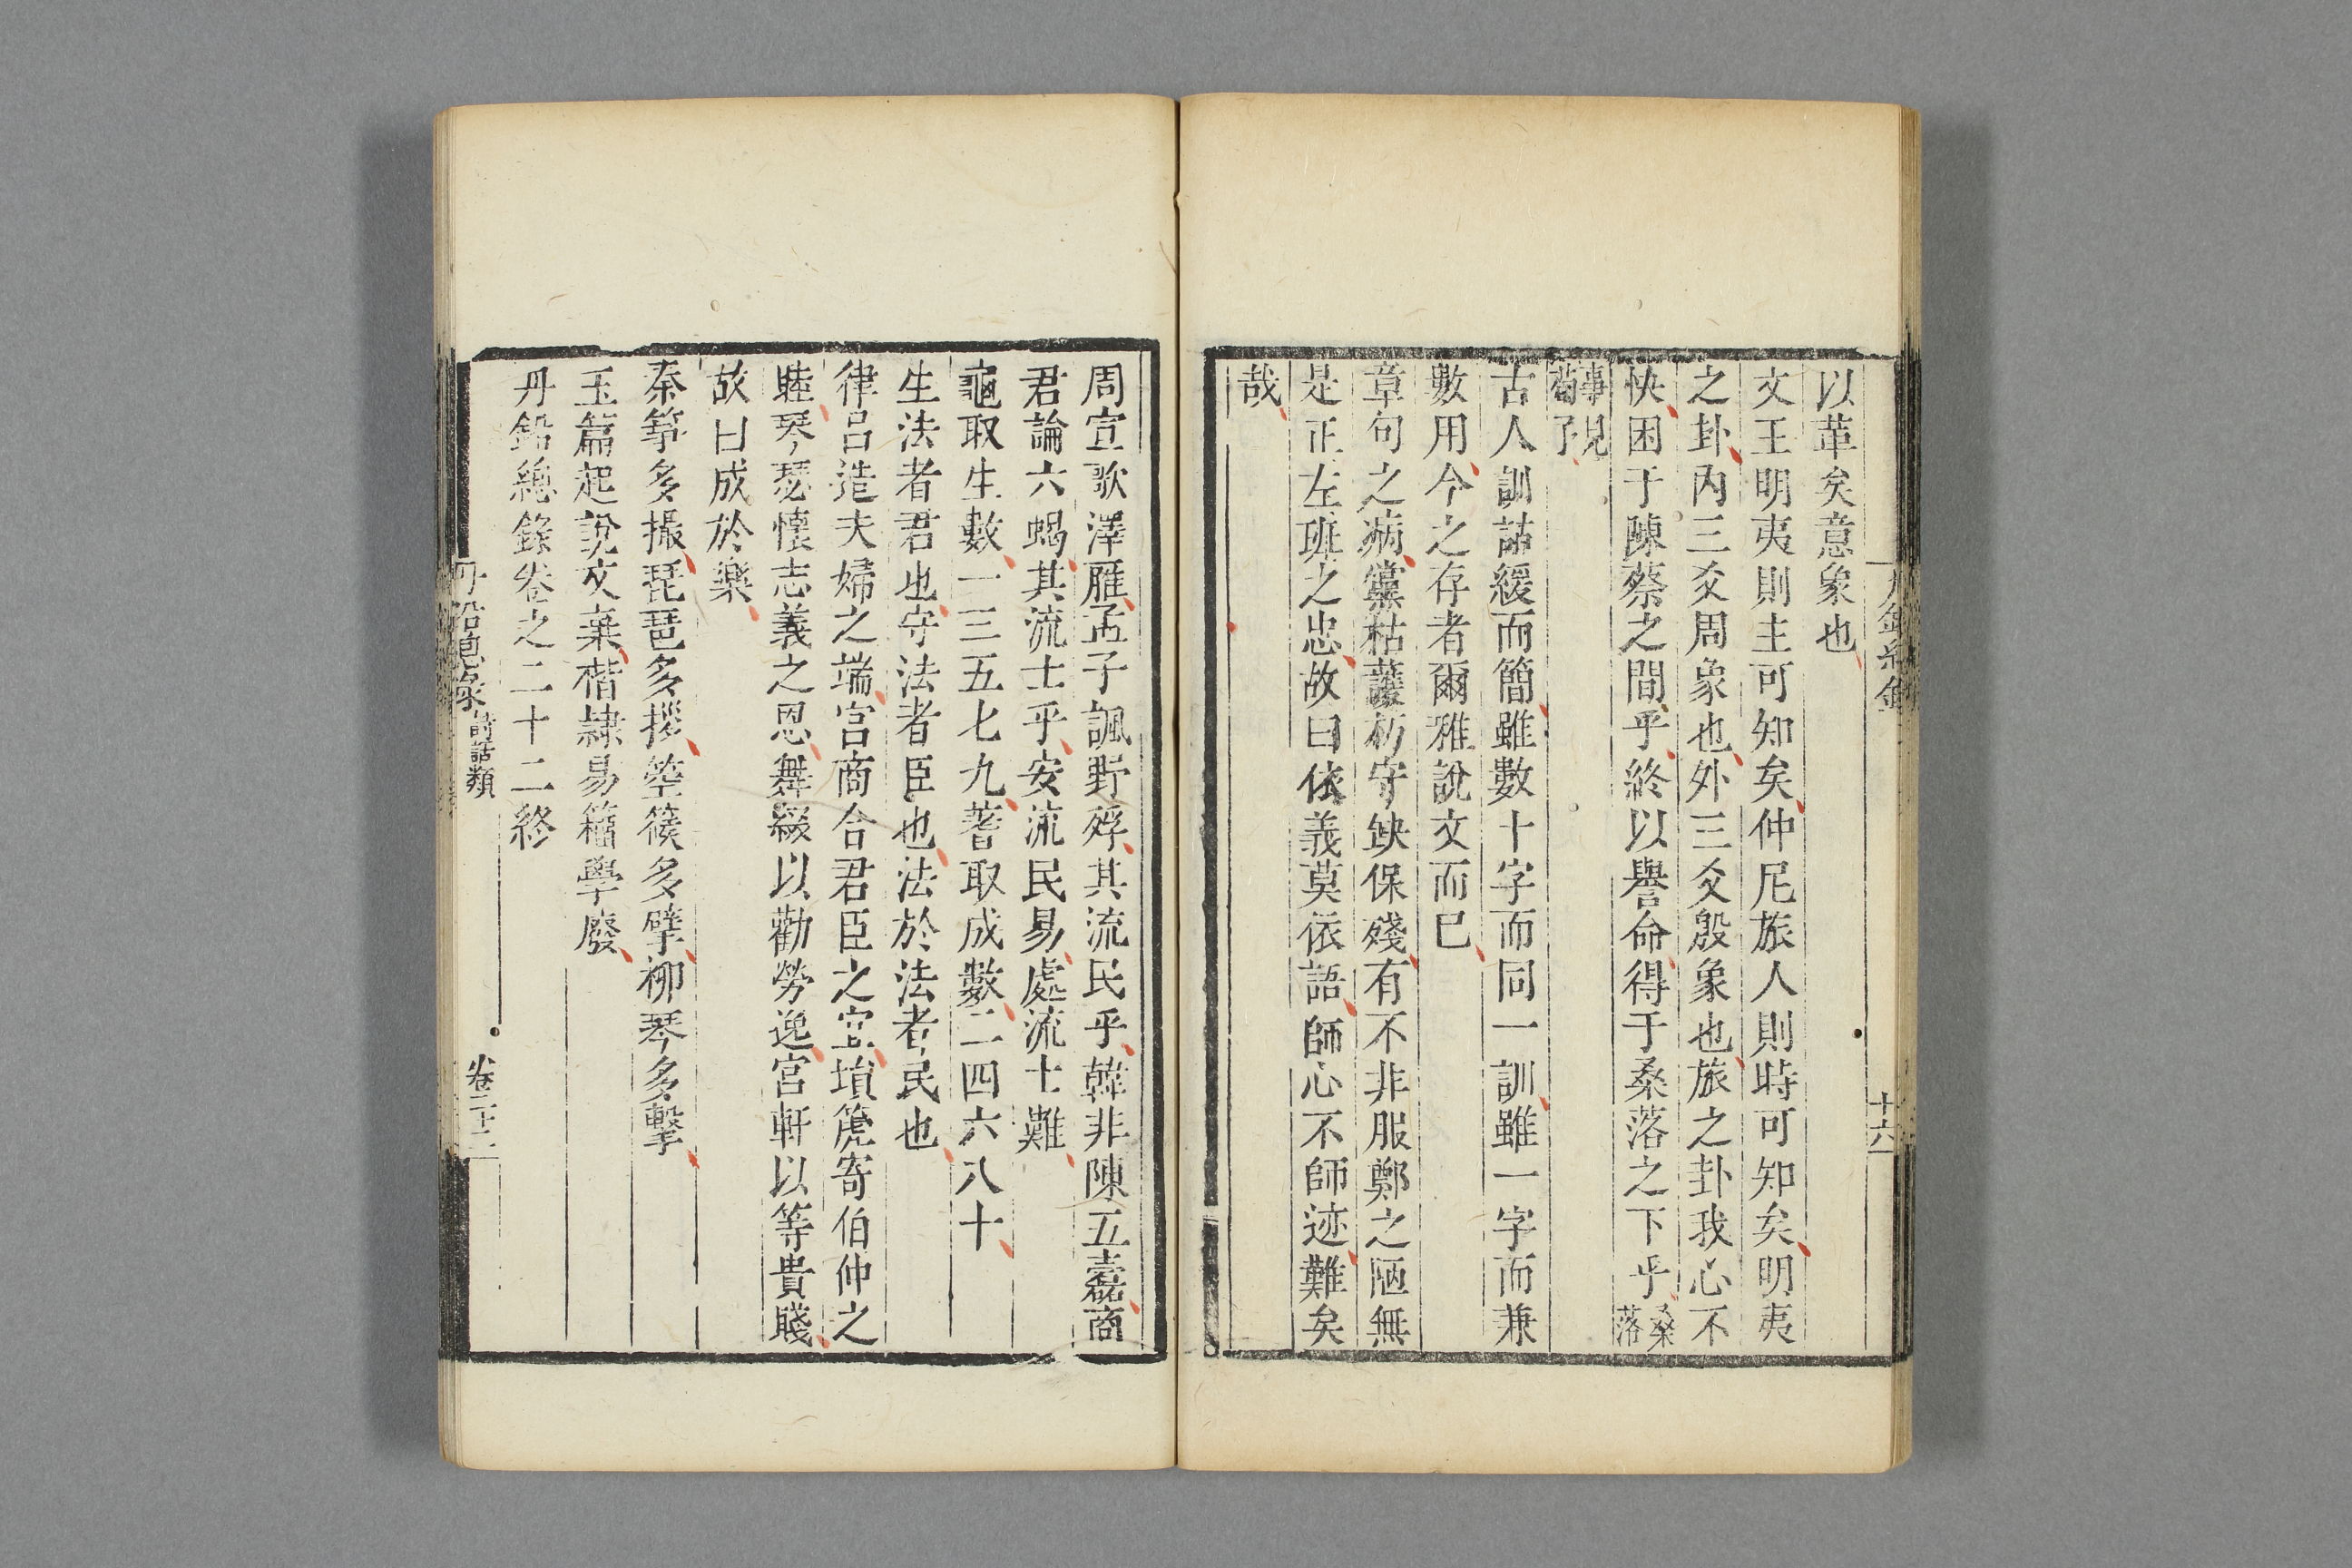 以革矣意象也
文王明夷則主可知矣仲尼旅人則時可知矣明夷
之卦內三爻周象也外三爻殷象也旅之卦我心不
快困于陳蔡之間乎終以譽命得于桑落之下乎桑落
事見荀子
古人訓詁緩而簡雖數十字而同一訓雖一字而兼
數用今之存者爾雅說文而已
章句之病黨枯護朽守缺保殘有不非服鄭之陋無
是正左班之忠故曰依義莫依語師心不師迹難矣
哉
十六
周宣歌澤雁孟子諷野殍其流民乎韓非陳五蠹商
君論六蝎其流士乎安流民易處流士難
龜取生數一三五七九蓍取成數二四六八十
生法者君也守法者臣也法於法者民也
律呂造夫婦之端宮商合君臣之宜塤篪寄伯仲之
睦琴瑟懷志義之恩舞綴以勸勞逸宮軒以等貴賤
故曰成於樂
秦箏多撮琵琶多摐箜篌多擘柳琴多擊
玉篇起說文棄楷隷易籀學廢
丹鉛總錄卷之二十二終
丹鉛總錄 詩話類 卷二十二